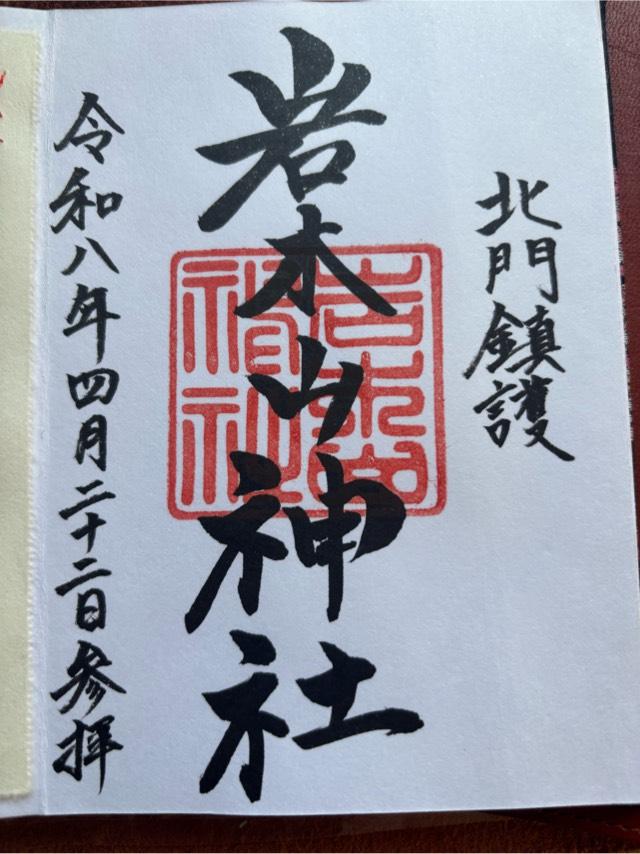 北門鎮護
岩木山神社
岩木山
神社
令和八年四月二十二日参拝